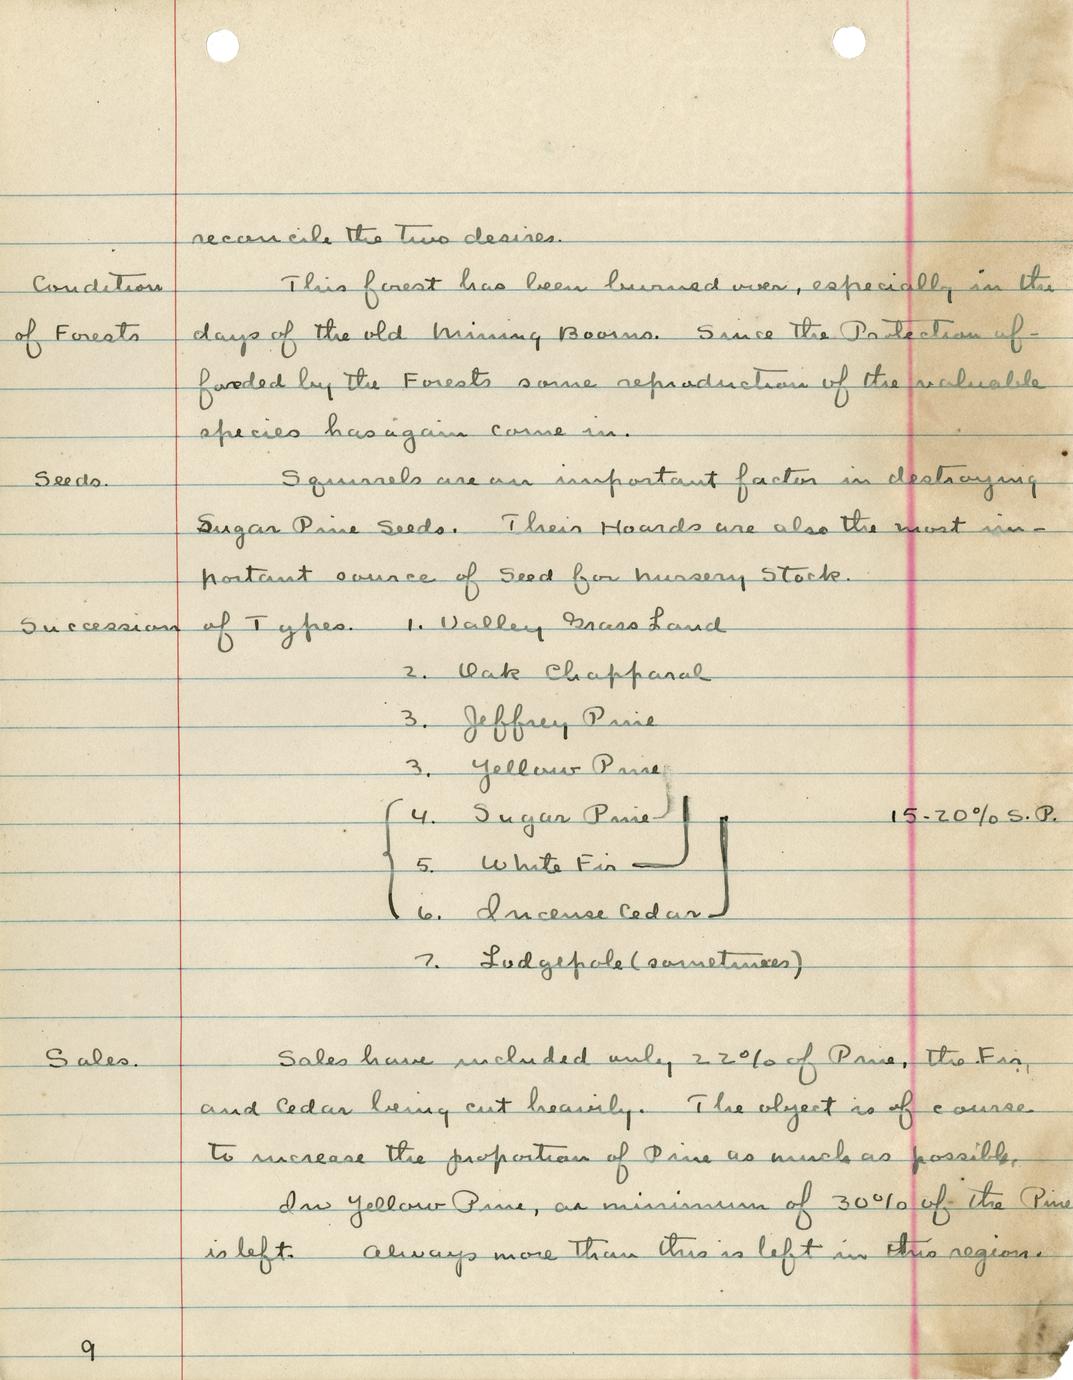 reconcile the two desires.
Condition This forest has been burned over, especially in the
of Forests days of the old Mining Booms. Since the Protection af-
forded by the Forests some reproduction of the valuable
species has again come in.
Seeds. Squirrels are an important factor in destroying
Sugar Pine Seeds. Their Hoards are also the most im-
portant source of Seed for Nursery Stock.
Succession of Types. 1. Valley Grass Land
2. Oak Chapparal
3. Jeffrey Pine
3. Yellow Pine
4. Sugar Pine 15-20% S.P.
5. White Fir
6. Incense Cedar
7. Lodgepole (sometimes)
Sales. Sales have included only 22% of Pine, the Fir,
and Cedar being cut heavily. The object is of course
to increase the proportion of Pine as much as possible.
In Yellow Pine, a minimum of 30% of the Pine
is left. Always more than this is left in this region.
9